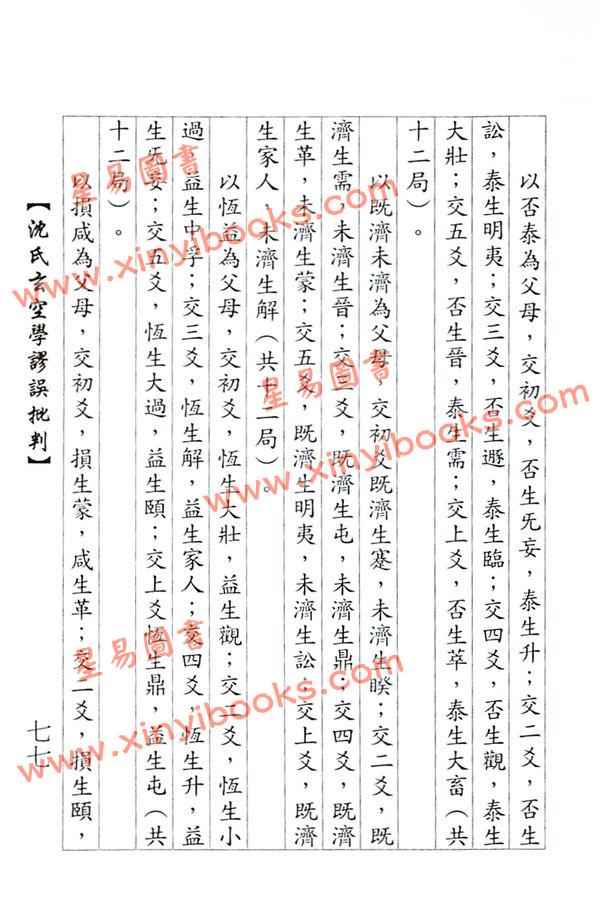 以否泰為父母，交初爻，否生旡妄，泰生升；交二爻，否生
訟，泰生明夷；交三爻，否生遯，泰生臨；交四爻，否生觀，泰生
大壯；交五爻，否生晉，泰生需；交上爻，否生萃，泰生大畜（共
十二局）。
以既濟未濟為父母，交初爻既濟生蹇，未濟生睽；交二爻，既
濟生需，未濟生晉；交三爻，既濟生屯，未濟生鼎；交四爻，既濟
生革，未濟生蒙；交五爻，既濟生明夷，未濟生訟；交上爻，既濟
生家人，未濟生解（共十二局）。
以恆益為父母，交初爻，恆生大壯，益生觀；交二爻，恆生小
過，益生中孚；交三爻，恆生解，益生家人；交四爻，恆生升，益
生旡妄；交五爻，恆生大過，益生頤；交上爻恆生鼎，益生屯（共
十二局）。
以損咸為父母，交初爻，損生蒙，咸生革；交二爻，損生頤，
【沈氏玄空學謬誤批判】
七七
星易圖書
www.xinyibooks.com
星易圖書
www.xinyibooks.com
星易圖書
www.xinyibooks.com